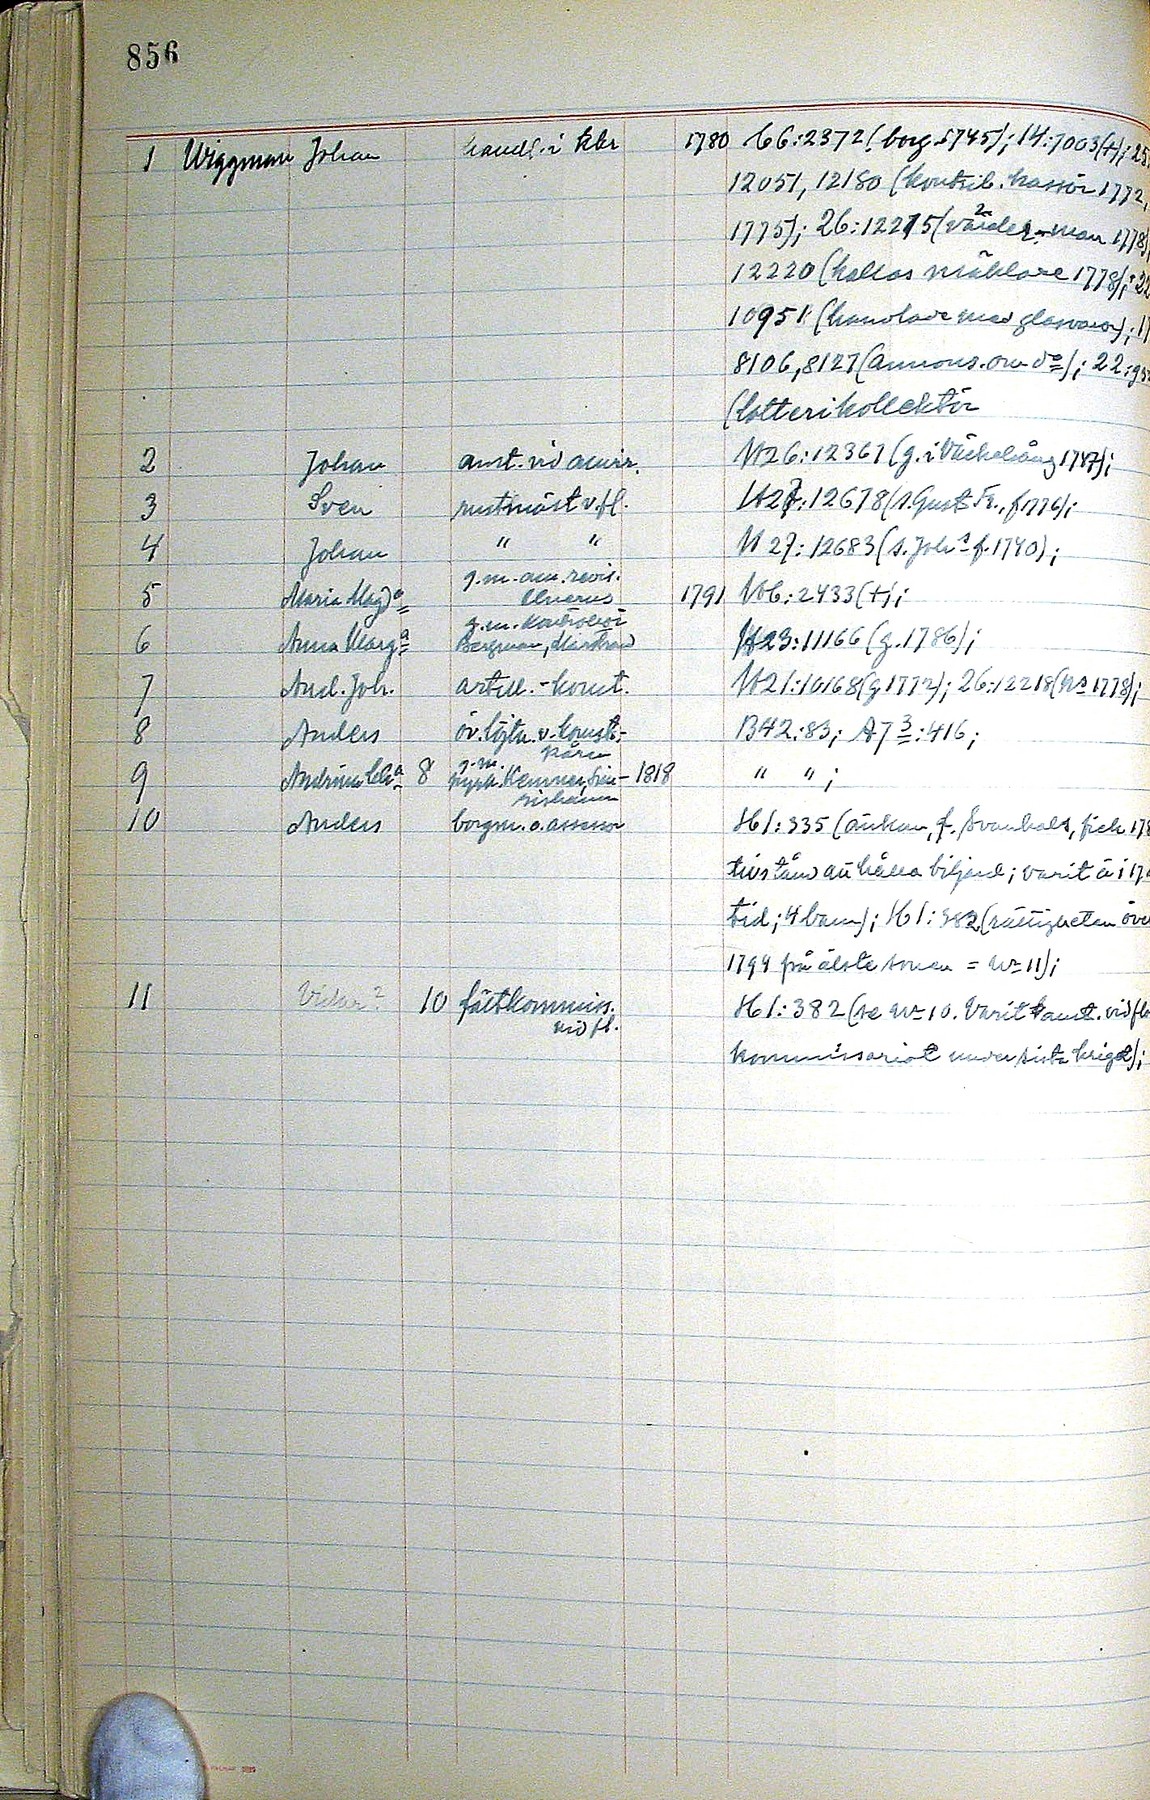 856
1 Wiggman Johan handl. i Kkr 1780 b6:2372 (borg. 1745); 14:7003(+); 25
12051, 12180 (kontrib. kassör 1772,
1775); 26:12215 (värder.man 1778)
12220 (kallas mäklare 1778); 22
10951 (handlade med glasvaror); 17
8106, 8127 (annons. om do); 22:
(lotterikollektör
2 Johan amt. vid amir. b26:12361 (g. i 1747);
3 Sven rustmäst v. fl. 12678 (s. Gust. Fr., f. 1776);
4 Johan " " b27:12683 (s. Johs f. 1740);
5 Maria Magda g.m. am. revis. 1791 b6:2433 (+);
6 Anna Marga g.m. kontrollör Bergman, Marstrand b23:11166 (g. 1786);
7 And. Joh. artill.-konst. b21:10168 (g 1772); 26:12218 (No 1778);
8 Anders öv.löjtn. v. konstr.- kåren B42:83; A7 3:416;
9 8 g.m. 1818 " " ;
10 Anders borgm. o. assessor H1:335 (änkan, f. Svanhals, fick 178
tillstånd att hålla biljard; varit ä i
tid; 4 barn); H1:382 (rättigheten över
1794 på älste sonen = No 11);
11 Vidar? 10 fältkommiss. vid fl. H1:382 (se No 10. Varit amt. vid fl.
kommissariat under sista kriget);